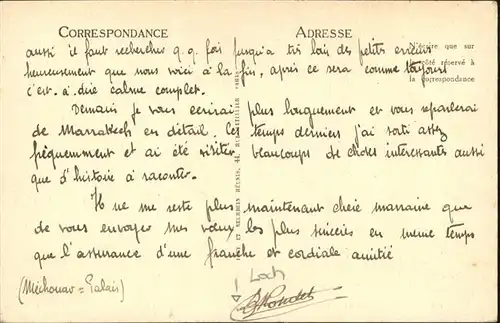 CORRESPONDANCE ADRESSE
N'écrire que sur
le côté réservé à
la correspondance
aussi il faut rechercher q.q. fois jusqu'a très loin des petits
heureusement que nous voici à la fin, après ce sera comme toujours
c'est. à. dire calme complet.
Demain je vous écrirai plus longuement et vous reparlerai
de Marrakech en détail. Ces temps derniers j'ai sorti assez
fréquemment et ai été visiter beaucoups de choses interessantes aussi
que d'histoire à raconter.
Il ne me reste plus maintenant chère marraine que
de vous envoyer mes voeux les plus sincères en même temps
que l'assurance d'une franche et cordiale amitié
(Méchouar = Palais)